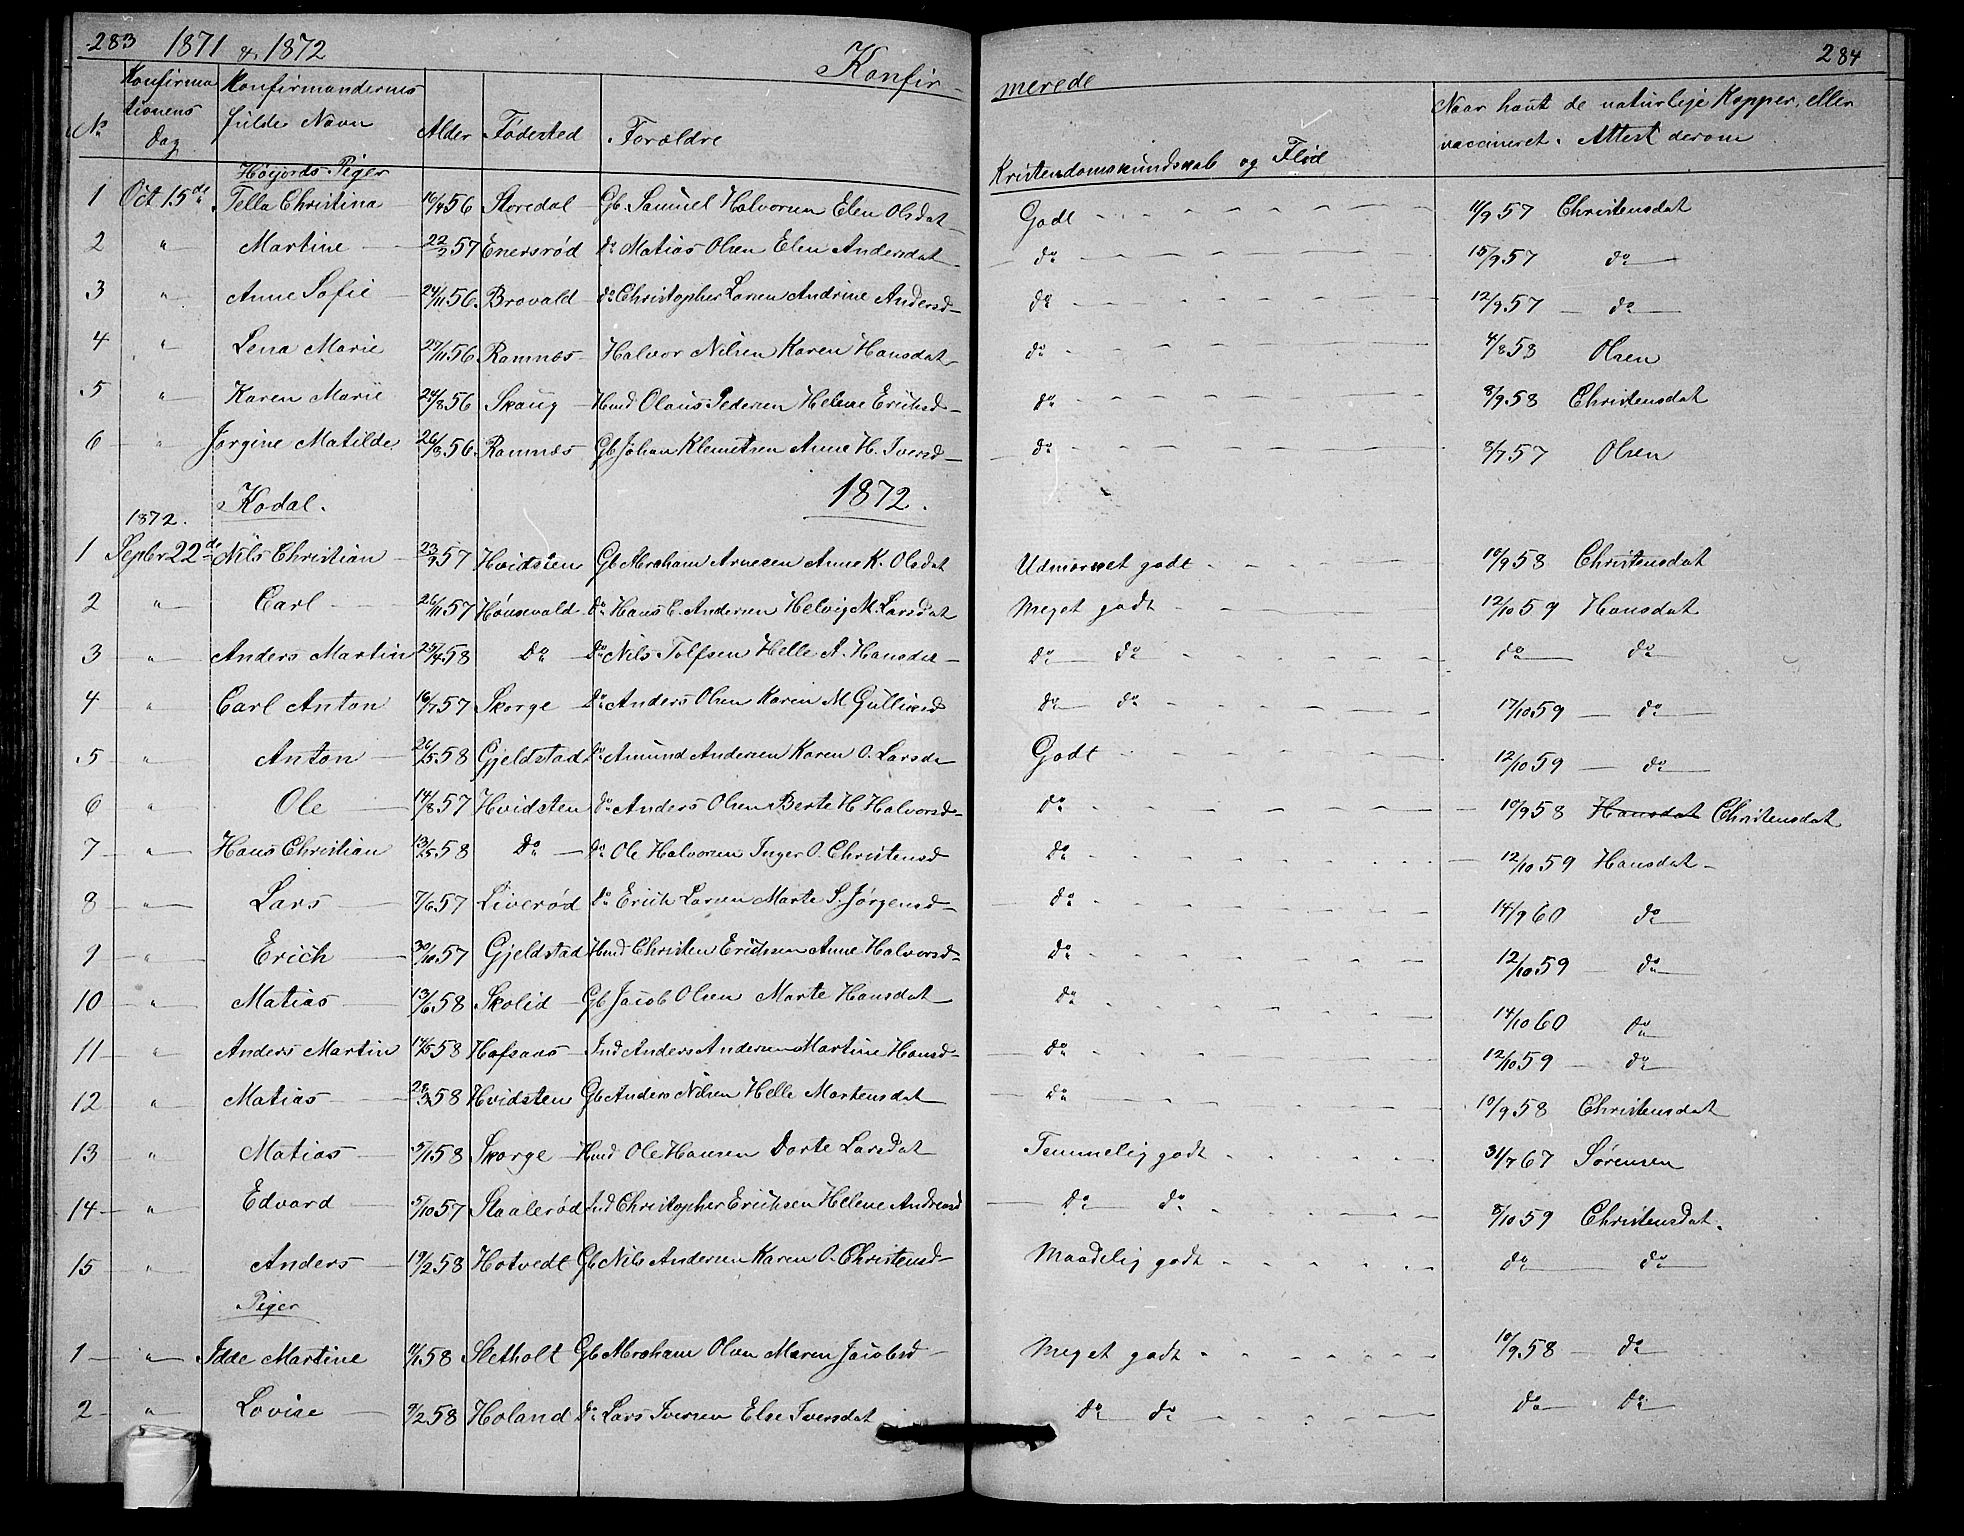 283 1871 & 1872 Konfirmerede 284
No Konfirmationens Dag Konfirmandernes fulde Navn Alder Fødested Forældre Kristendomskundskab og Flid Naar havt de naturlige Kopper, eller vaccineret. Attest derom
Høijords Piger
1 Oct 15de Tella Christina 56 Storedal Gb. Samuel Halvorsen Elen Olsdat Godt 11/9 57 Christensdat
2 " Martine 57 Enersrød do Matias Olsen Elen Andersdat do 15/9 57 do
3 " Anne Sofie 24/11 56 Brovald do Christopher Larsen Andrine Andersd do 12/9 57 do
4 " Lena Marie 27/11 56 Ramnæs Halvor Nilsen Karen Hansdat do 4/8 58 Olsen
5 " Karen Marie 24/8 56 Skaug Hmd Olaus Pedersen Helene Erichsd do 8/9 58 Christensdat
6 " Jørgine Matilde 26/8 56 Ramnæs Gb Johan Klemetsen Anne H. Iversd do 8/7 57 Olsen
Kodal. 1872.
1872.
1 Septbr 22de Nils Christian 23/9 57 Hvidsten Gb Abraham Arnesen Anne K. Olsdat Udmærket godt 10/9 58 Christensdat
2 " Carl 26/11 57 Hønsevald do Hans C. Andersen Helvig M. Larsdat Meget godt 12/10 59 Hansdat
3 " Anders Martin 25/4 58 Do Do Nils Tolfsen Helle A. Hansdat Do do do do
4 " Carl Anton 16/7 57 Skorge Do Anders Olsen Karen M Gulliksd Do do 17/10 59 do
5 " Anton 26/5 58 Gjeldstad Do Amund Andersen Karen O. Larsda Godt 12/10 59 do
6 " Ole 14/8 57 Hvidsten do Anders Olsen Berte H. Halvorsd Do 10/9 58 Hansdat Christensdat
7 " Hans Christian 13/5 58 Do Do Ole Halvorsen Inger O. Christensd Do 12/10 59 Hansdat
8 " Lars 7/6 57 Liverød Do Erich Larsen Marte S. Jørgensd Do 14/9 60 do
9 " Erich 30/10 57 Gjeldstad Hmd Christen Erichsen Anne Halvorsd Do 12/10 59 do
10 " Matias 13/6 58 Skolid Gb Jacob Olsen Marte Hansdat Do 14/10 60 do
11 " Anders Martin 17/5 58 Hafsaas Ind Anders Andersen Martine Hansd Do 12/10 59 do
12 " Matias 58 Hvidsten Gb Anders Nilsen Helle Mortensdat Do 10/9 58 Christensdat
13 " Matias 58 Skorge Hmd Ole Hansen Dorte Larsdat Temmelig godt 31/7 67 Sørensen
14 " Edvard 5/10 57 Staalerød Ind Christopher Erichsen Helene Andreasd Do do 8/10 59 Christensdat.
15 " Anders 19/2 58 Hotvedt Gb Nils Andersen Karen O. Christensd Maadelig godt do do
Piger
1 " Idde Martine 58 Sletholt Gb Abraham Olsen Maren Jacobsd Meget godt 10/9 58 do
2 " Lovise 9/2 58 Holand do Lars Iversen Else Iversdat Do do do do